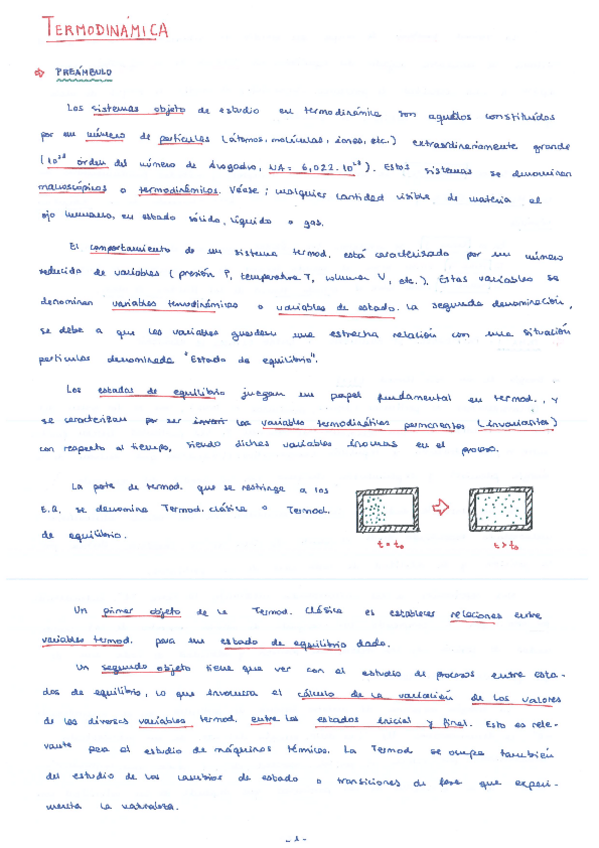 TERMODINÁMICA
PREÁMBULO
Los sistemas objeto de estudio en termodinámica son aquellos constituidos
por un número de partículas (átomos, moléculas, iones, etc.) extraordinariamente grande
(10²³ órden del número de Avogadro, NA = 6,022·10²³). Estos sistemas se denominan
macroscópicos o termodinámicos. Véase; cualquier cantidad visible de materia al
ojo humano, en estado sólido, líquido o gas.
El comportamiento de un sistema termod. está caracterizado por un número
reducido de variables (presión P, temperatura T, volumen V, etc.). Estas variables se
denominan variables termodinámicas o variables de estado. La segunda denominación,
se debe a que las variables guardan una estrecha relación con una situación
particular denominada "Estado de equilibrio".
Los estados de equilibrio juegan un papel fundamental en termod., y
se caracterizan por ser las variables termodinámicas permanentes (invariantes)
con respecto al tiempo, siendo dichas variables en el proceso.
La parte de termod. que se restringe a los
E.Q. se denomina Termod. clásica o Termod.
de equilibrio.
t = t₀
t > t₀
Un primer objeto de la Termod. Clásica es establecer relaciones entre
variables termod. para un estado de equilibrio dado.
Un segundo objeto tiene que ver con el estudio de procesos entre esta-
dos de equilibrio, lo que involucra el cálculo de la variación de los valores
de las diversas variables termod. entre los estados inicial y final. Esto es rele-
vante para el estudio de máquinas térmicas. La Termod se ocupa también
del estudio de los cambios de estado o transiciones de fase que experi-
menta la naturaleza.
- 1 -